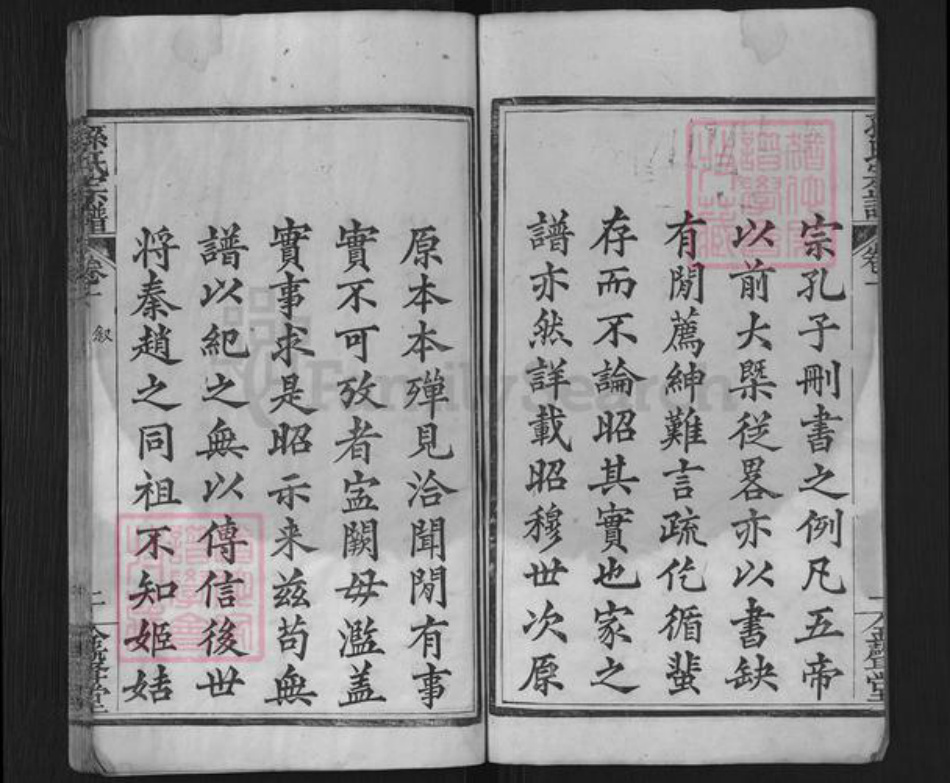 宗孔子刪書之例凡五帝
以前大槩從畧亦以書缺
有閒薦紳難言疏仡循蜚
存而不論昭其實也家之
譜亦然詳載昭穆世次原
原本本殫見洽聞閒有事
實不可攷者寍闕毋濫蓋
實事求是昭示来兹苟無
譜以紀之無以傳信後世
将秦趙之同祖不知姬姞
孫氏宗譜
卷一
叙
二
FamilySearch